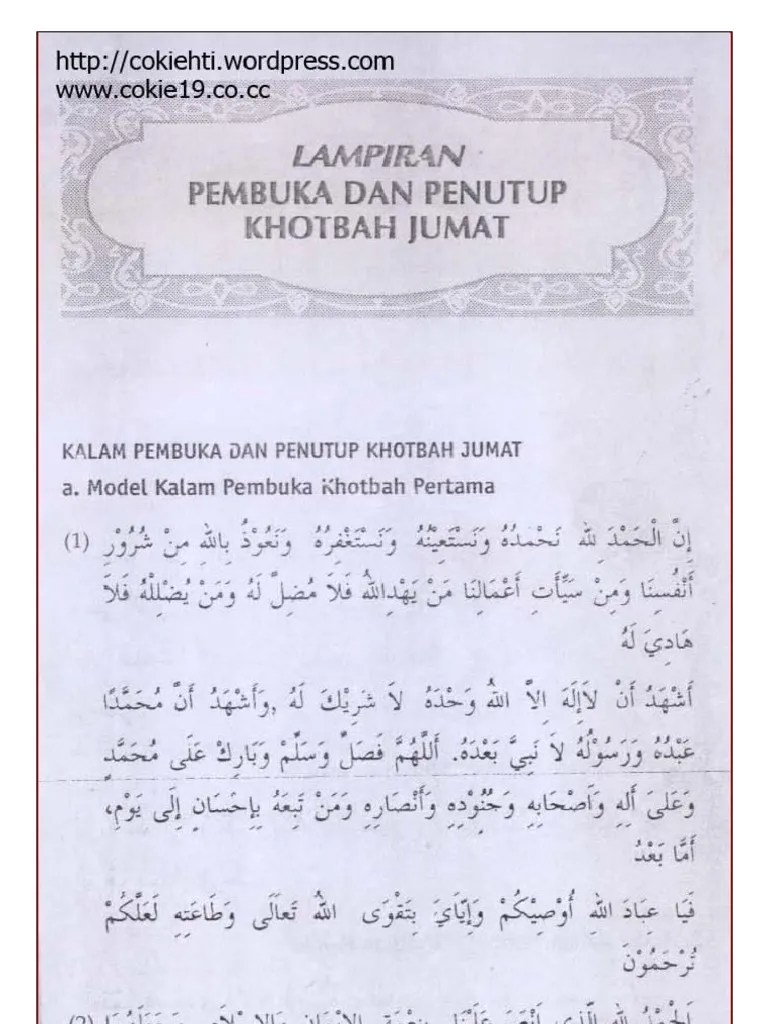 http://cokiehti.wordpress.com
www.cokie19.co.cc
LAMPIRAN
PEMBUKA DAN PENUTUP
KHOTBAH JUMAT
KALAM PEMBUKA DAN PENUTUP KHOTBAH JUMAT
a. Model Kalam Pembuka Khotbah Pertama
(1) إِنَّ الْحَمْدَ لِلهِ نَحْمَدُهُ وَنَسْتَعِيْنُهُ وَنَسْتَغْفِرُهُ وَنَعُوْذُ بِاللهِ مِنْ شُرُوْرِ
أَنْفُسِنَا وَمِنْ سَيِّأَتِ أَعْمَالِنَا مَنْ يَهْدِاللهُ فَلاَ مُضِلَّ لَهُ وَمَنْ يُضْلِلْهُ فَلاَ
هَادِيَ لَهُ
أَشْهَدُ أَنْ لاَإِلَهَ اِلاَّ اللهُ وَحْدَهُ لاَ شَرِيْكَ لَهُ ,وَأَشْهَدُ أَنَّ مُحَمَّدًا
عَبْدُهُ وَرَسُوْلُهُ لاَ نَبِيَّ بَعْدَهُ. أَللَّهُمَّ فَصَلِّ وَسَلِّمْ وَبَارِكْ عَلَى مُحَمَّدٍ
وَعَلىَ أَلِهِ وَاَصْحَابِهِ وَجُنُوْدِهِ وَأَنْصَارِهِ وَمَنْ تَبِعَهُ بِإِحْسَانٍ إِلَى يَوْمِ،
أَمَّا بَعْدُ
فَيَا عِبَادَ اللهِ أُوْصِيْكُمْ وَإِيَّايَ بِتَقْوَى اللهُ تَعَالَى وَطَاعَتِهِ لَعَلَّكُمْ
تُرْحَمُوْنَ